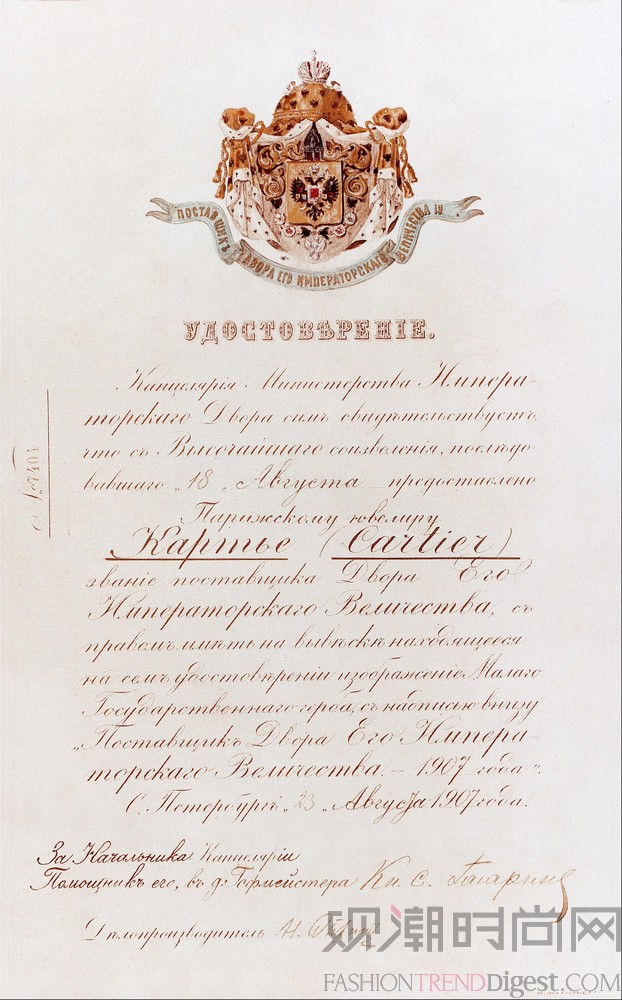 ПОСТАВЩИКЪ ДВОРА ЕГО ИМПЕРАТОРСКАГО ВЕЛИЧЕСТВА
УДОСТОВѢРЕНІЕ.
Канцелярія Министерства Импера-
торскаго Двора симъ свидѣтельствуетъ,
что съ Высочайшаго соизволенія, послѣдо-
вавшаго „18„ Августа предоставлено
Парижскому ювелиру
Картье (Cartier)
званіе поставщика Двора Его
Императорскаго Величества, съ
правомъ имѣть на вывѣскѣ находящееся
на семъ удостовѣреніи изображеніе Малаго
Государственнаго герба, съ надписью внизу
„Поставщикъ Двора Его Импера-
торскаго Величества. – 1907 года".
С. Петербургъ „23„ Августа 1907 года.
№ 7404
За Начальника Канцеляріи
Помощникъ его, въ д. Гофмейстера Кн. С. Гагаринъ
Дѣлопроизводитель Н.
观潮时尚网
FASHIONTRENDDigest.COM